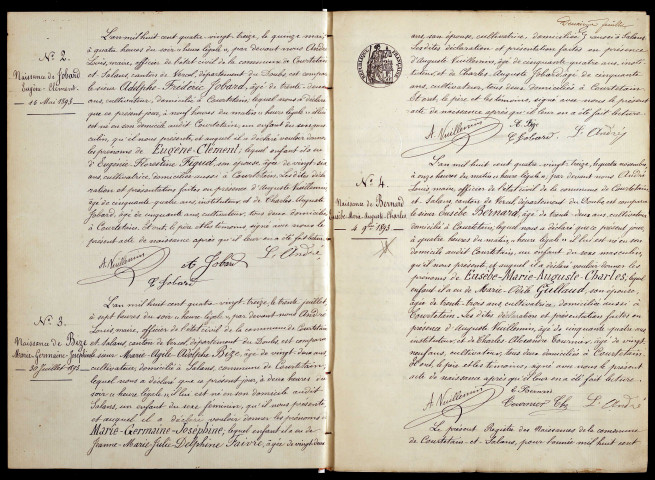 N.º 2.
Naissance de Jobard
Eugène-Clément.
14 Mai 1893
L'an mil huit cent quatre-vingt-treize, le quinze mai
à quatre heures du soir « heure légale », par devant nous André
Louis, maire, officier de l'état civil de la commune de Courtetain
et Salans, canton de Vercel, département du Doubs, est comparu
le sieur Adolphe Frédéric Jobard, âgé de trente-
ans, cultivateur, domicilié à Courtetain, lequel nous a déclaré
que ce présent jour, à neuf heures du matin « heure légale » il lui
est né en son domicile audit Courtetain, un enfant du sexe mas-
culin, qu'il nous présente, et auquel il a déclaré vouloir donner
les prénoms de Eugène-Clément, lequel enfant il a eu
d'Eugénie Florentine Piguet, son épouse, âgée de vingt-six
ans, cultivatrice, domiciliée aussi à Courtetain. Lesdites décla-
ration et présentation faites en présence d'Auguste Vuillemin,
âgé de cinquante-quatre ans, instituteur et de Charles Auguste
Jobard, âgé de cinquante ans, cultivateur, tous deux domiciliés
à Courtetain, et ont, le père et les témoins signé avec nous le
présent acte de naissance après qu'il leur en a été fait lecture.
A. Vuillemin A. Jobard L. André
C. Jobard
N.º 3.
Naissance de Bize
Marie-Germaine-Joséphine
30 Juillet 1893
L'an mil huit cent quatre-vingt-treize, le trente juillet,
à sept heures du soir « heure légale », par devant nous André
Louis, maire, officier de l'état civil de la commune de Courtetain
et Salans, canton de Vercel, département du Doubs, est comparu
le sieur Marie-Agile-Adolphe Bize, âgé de vingt-deux ans,
cultivateur, domicilié à Salans, commune de Courtetain,
lequel nous a déclaré que ce présent jour, à deux heures du
soir « heure légale », il lui est né en son domicile audit
Salans, un enfant du sexe féminin, qu'il nous présente,
et auquel il a déclaré vouloir donner les prénoms de
Marie-Germaine-Joséphine, lequel enfant il a eu de
Jeanne-Marie-Julie Delphine Faivre, âgée de vingt-deux
ans, son épouse, cultivatrice, domiciliée aussi à Salans.
Lesdites déclaration et présentation faites en présence
d'Auguste Vuillemin, âgé de cinquante-quatre ans, insti-
tuteur, et de Charles Auguste Jobard âgé de cinquante
ans, cultivateur, tous deux domiciliés à Courtetain.
Et ont, le père et les témoins, signé avec nous le présent
acte de naissance après qu'il leur en a été fait lecture.
A. Vuillemin L. André
C. Jobard
N.º 4.
Naissance de Bernard
Eusèbe-Marie-Auguste-Charles
4 9bre 1893
L'an mil huit cent quatre-vingt-treize, le quatre novembre
à onze heures du matin « heure légale », par devant nous André
Louis, maire, officier de l'état civil de la commune de Courtetain
et Salans, canton de Vercel, département du Doubs est comparu
le sieur Eusèbe Bernard, âgé de trente-deux ans, cultivateur
domicilié à Courtetain, lequel nous a déclaré que ce présent jour,
à quatre heures du matin « heure légale » il lui est né en son
domicile audit Courtetain, un enfant du sexe masculin,
qu'il nous présente, et auquel il a déclaré vouloir donner les
prénoms de Eusèbe-Marie-Auguste-Charles, lequel
enfant il a eu de Marie-Odile Guillaud, son épouse,
âgée de trente-trois ans, cultivatrice, domiciliée aussi à
Courtetain. Lesdites déclaration et présentation faites en
présence d'Auguste Vuillemin, âgé de cinquante-quatre ans,
instituteur, et de Charles Alexandre Tournier, âgé de vingt
neuf ans, cultivateur, tous deux domiciliés à Courtetain.
Et ont, le père et les témoins, signé avec nous le présent
acte de naissance après qu'il leur en a été fait lecture.
A. Vuillemin Tournier Ch. L. André
Le présent Registre des Naissances de la commune
de Courtetain-et-Salans, pour l'année mil huit cent